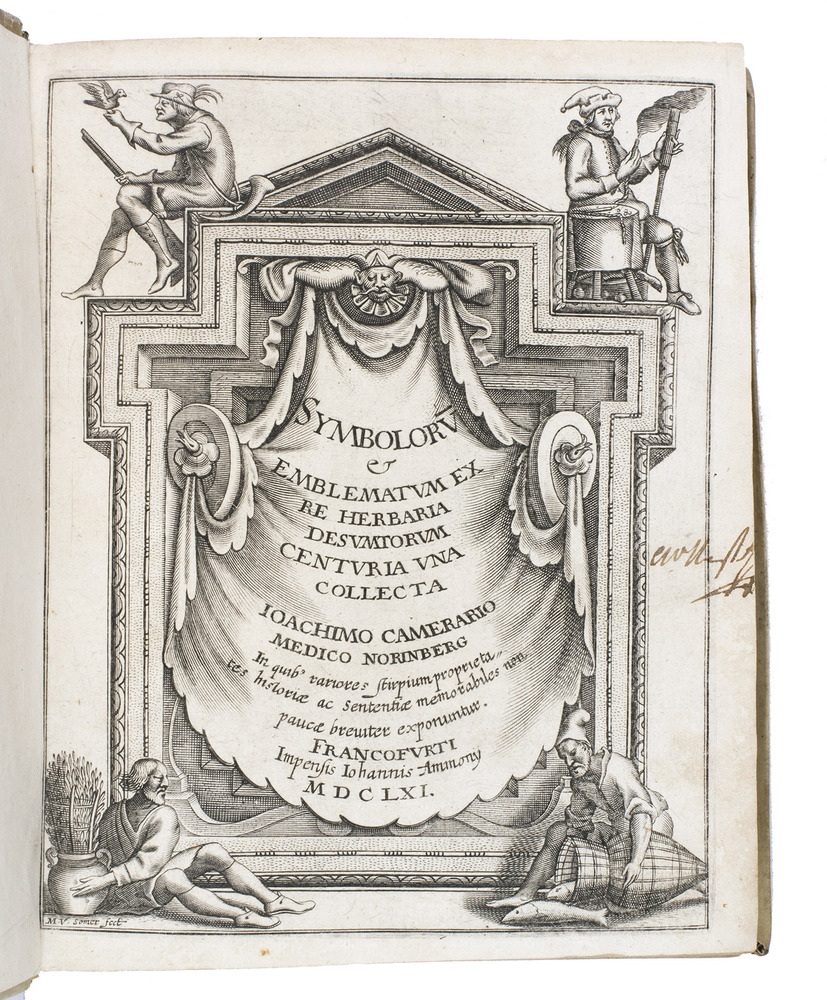 SYMBOLORṼ
&
EMBLEMATVM EX
RE HERBARIA
DESVMTORVM
CENTVRIA VNA
COLLECTA
IOACHIMO CAMERARIO
MEDICO NORINBERG
In quibꝰ rariores stirpium proprieta„
tes historiæ ac Sententiæ memorabiles non
paucæ breviter exponuntur.
FRANCOFVRTI
Impensis Iohannis Ammony
M D C LXI.
M. V. Somer fecit